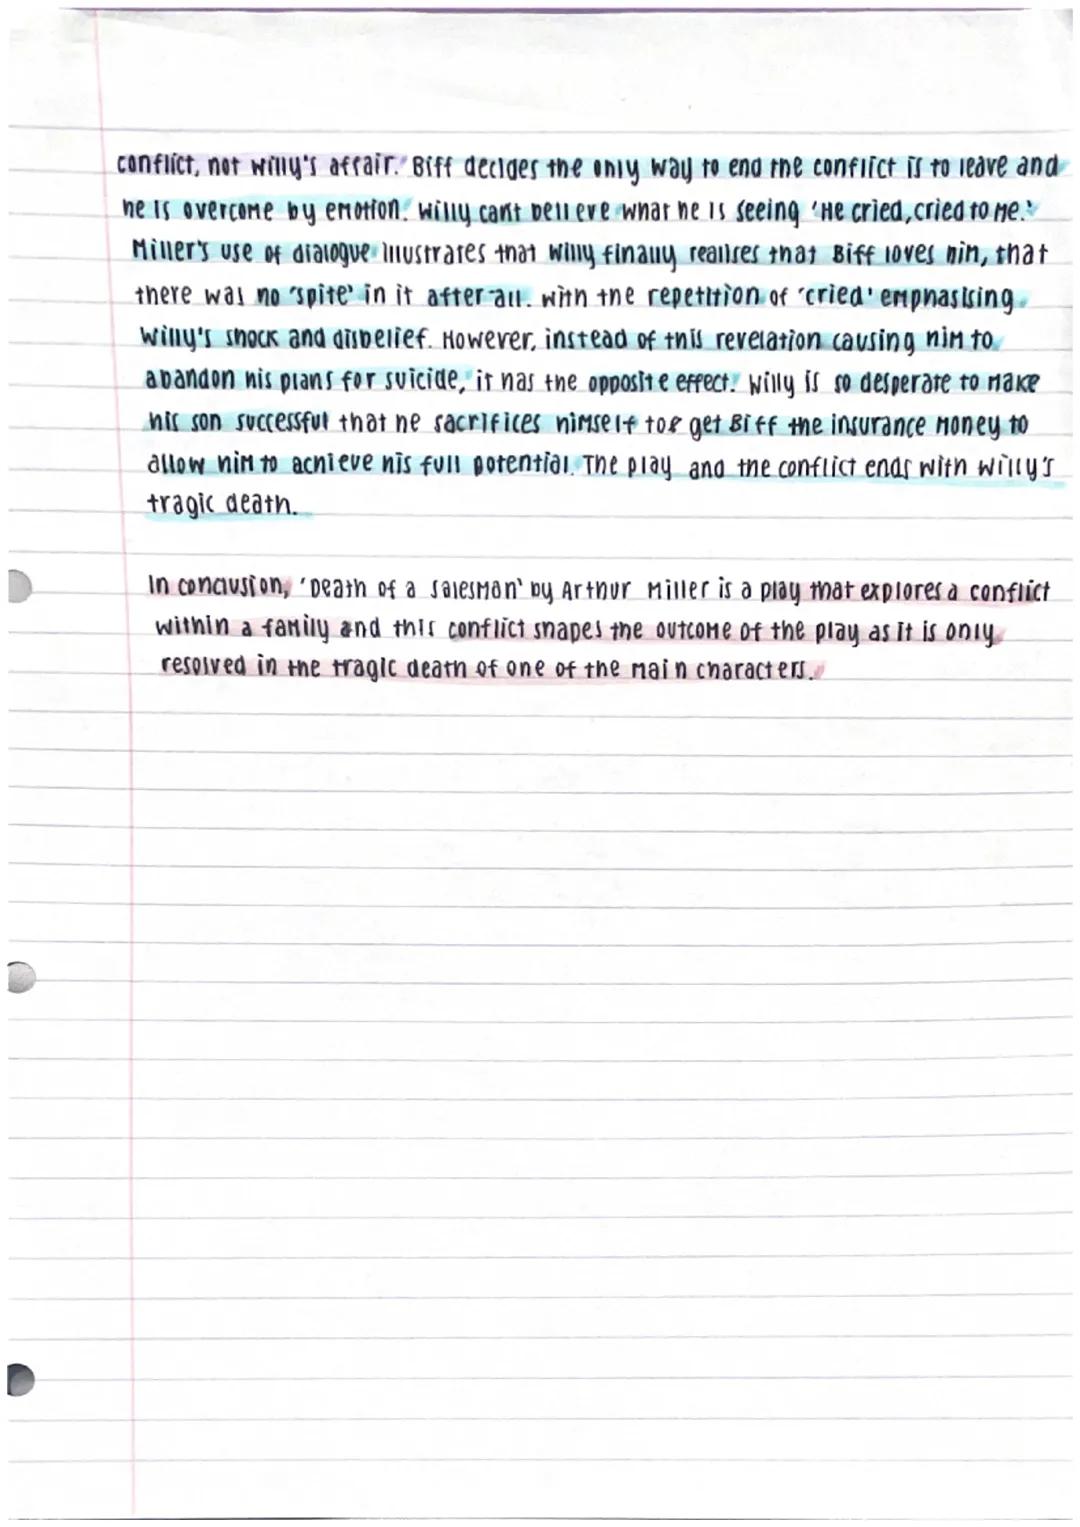 conflict, not willy's affair. Biff decides the only way to end the conflict is to leave and
he is overcome by emotion. Willy cant believe what he is seeing 'He cried, cried to me.'
Miller's use of dialogue illustrates that willy finally realises that Biff loves him, that
there was no 'spite' in it after all. with the repetition of 'cried' emphasising
willy's shock and disbelief. However, instead of this revelation causing him to
abandon his plans for suicide, it has the opposite effect. Willy is so desperate to make
his son successful that he sacrifices himself to get Biff the insurance money to
allow him to achieve his full potential. The play and the conflict ends with willy's
tragic death.
In conclusion, 'Death of a Salesman' by Arthur Miller is a play that explores a conflict
within a family and this conflict shapes the outcome of the play as it is only
resolved in the tragic death of one of the main characters.